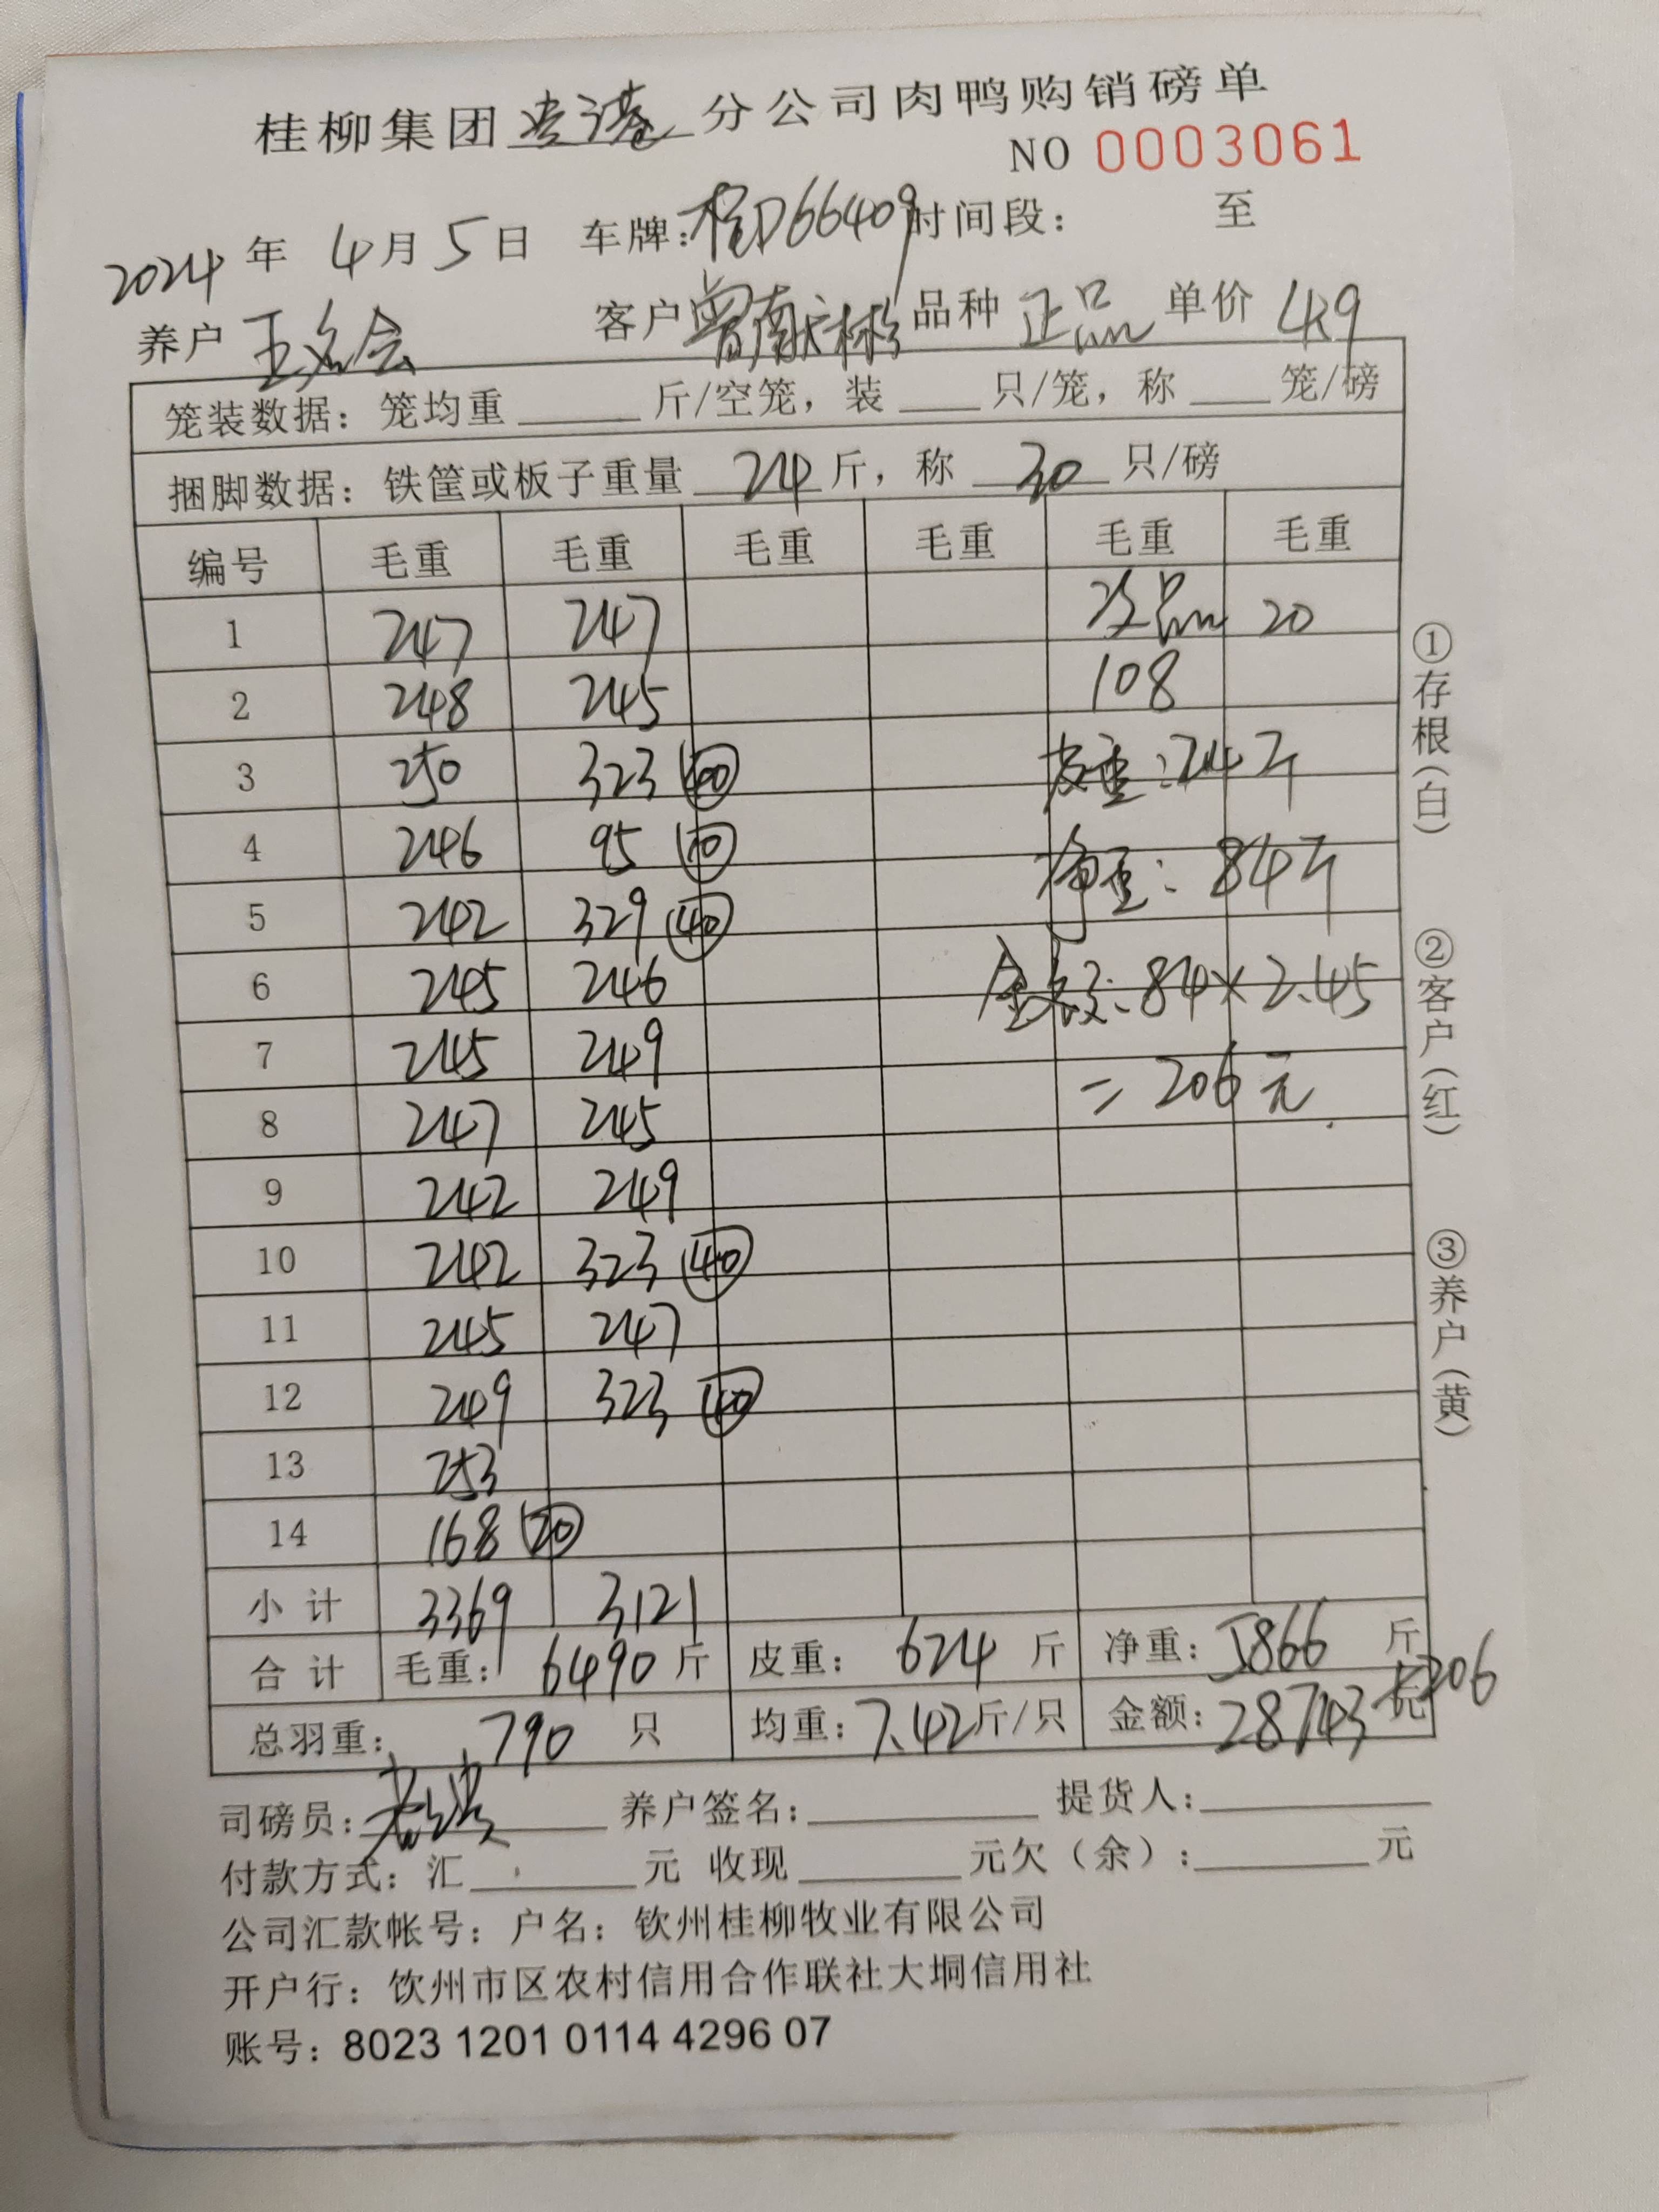 桂柳集团贵港分公司肉鸭购销磅单
NO 0003061
2024年4月5日 车牌:桂D66409时间段: 至
养户 王 会 客户 曾献彬 品种 正品 单价 4.9
笼装数据: 笼均重____斤/空笼, 装____只/笼, 称____笼/磅
捆脚数据: 铁筐或板子重量 24 斤, 称 30 只/磅
编号 毛重 毛重 毛重 毛重 毛重 毛重
1 247 247 次品 20
2 248 245 108
3 250 323 40 皮重:24斤
4 246 95 10 净重:84斤
5 242 329 40
6 245 246 金额:84×2.45
7 245 249 =206元
8 247 245
9 242 249
10 242 323 40
11 245 247
12 249 323 40
13 253
14 168 20
小计 3369 3121
合计 毛重: 6490斤 皮重: 624 斤 净重: 5866 斤
总羽重: 790 只 均重: 7.42斤/只 金额: 28743元+206
司磅员: 养户签名: 提货人:
付款方式: 汇____元 收现____元欠(余):____元
公司汇款帐号: 户名: 钦州桂柳牧业有限公司
开户行: 钦州市区农村信用合作联社大垌信用社
账号: 8023 1201 0114 4296 07
①存根(白)
②客户(红)
③养户(黄)